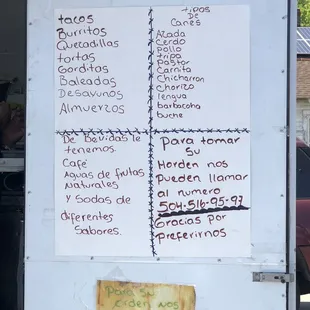 tacos
Burritos
Quezadillas
tortas
Gorditas
Baleadas
Desayunos
Almuerzos
tipos
De
Canes
Azada
Cerdo
pollo
tripa
pastor
Carnita
Chicharon
chorizo
lengua
barbacoha
buche
De Bevidas le
tenemos.
Café
Aguas de frutas
Naturales
y Sodas de
diferentes
Sabores.
Para tomar
Su
Horden nos
Pueden llamar
al numero
504-516-95-97
Gracias por
preferirnos
Para Su
orden nos